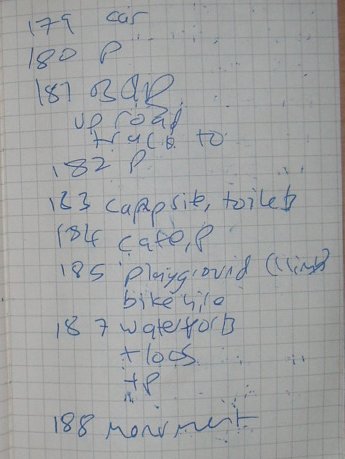 179 car
180 P
181 B&P
up road
track to
182 P
183 campsite, toilets
184 cafe, P
185 playground (
bike hire
187 waterfor
+ loos
+ P
188 monument